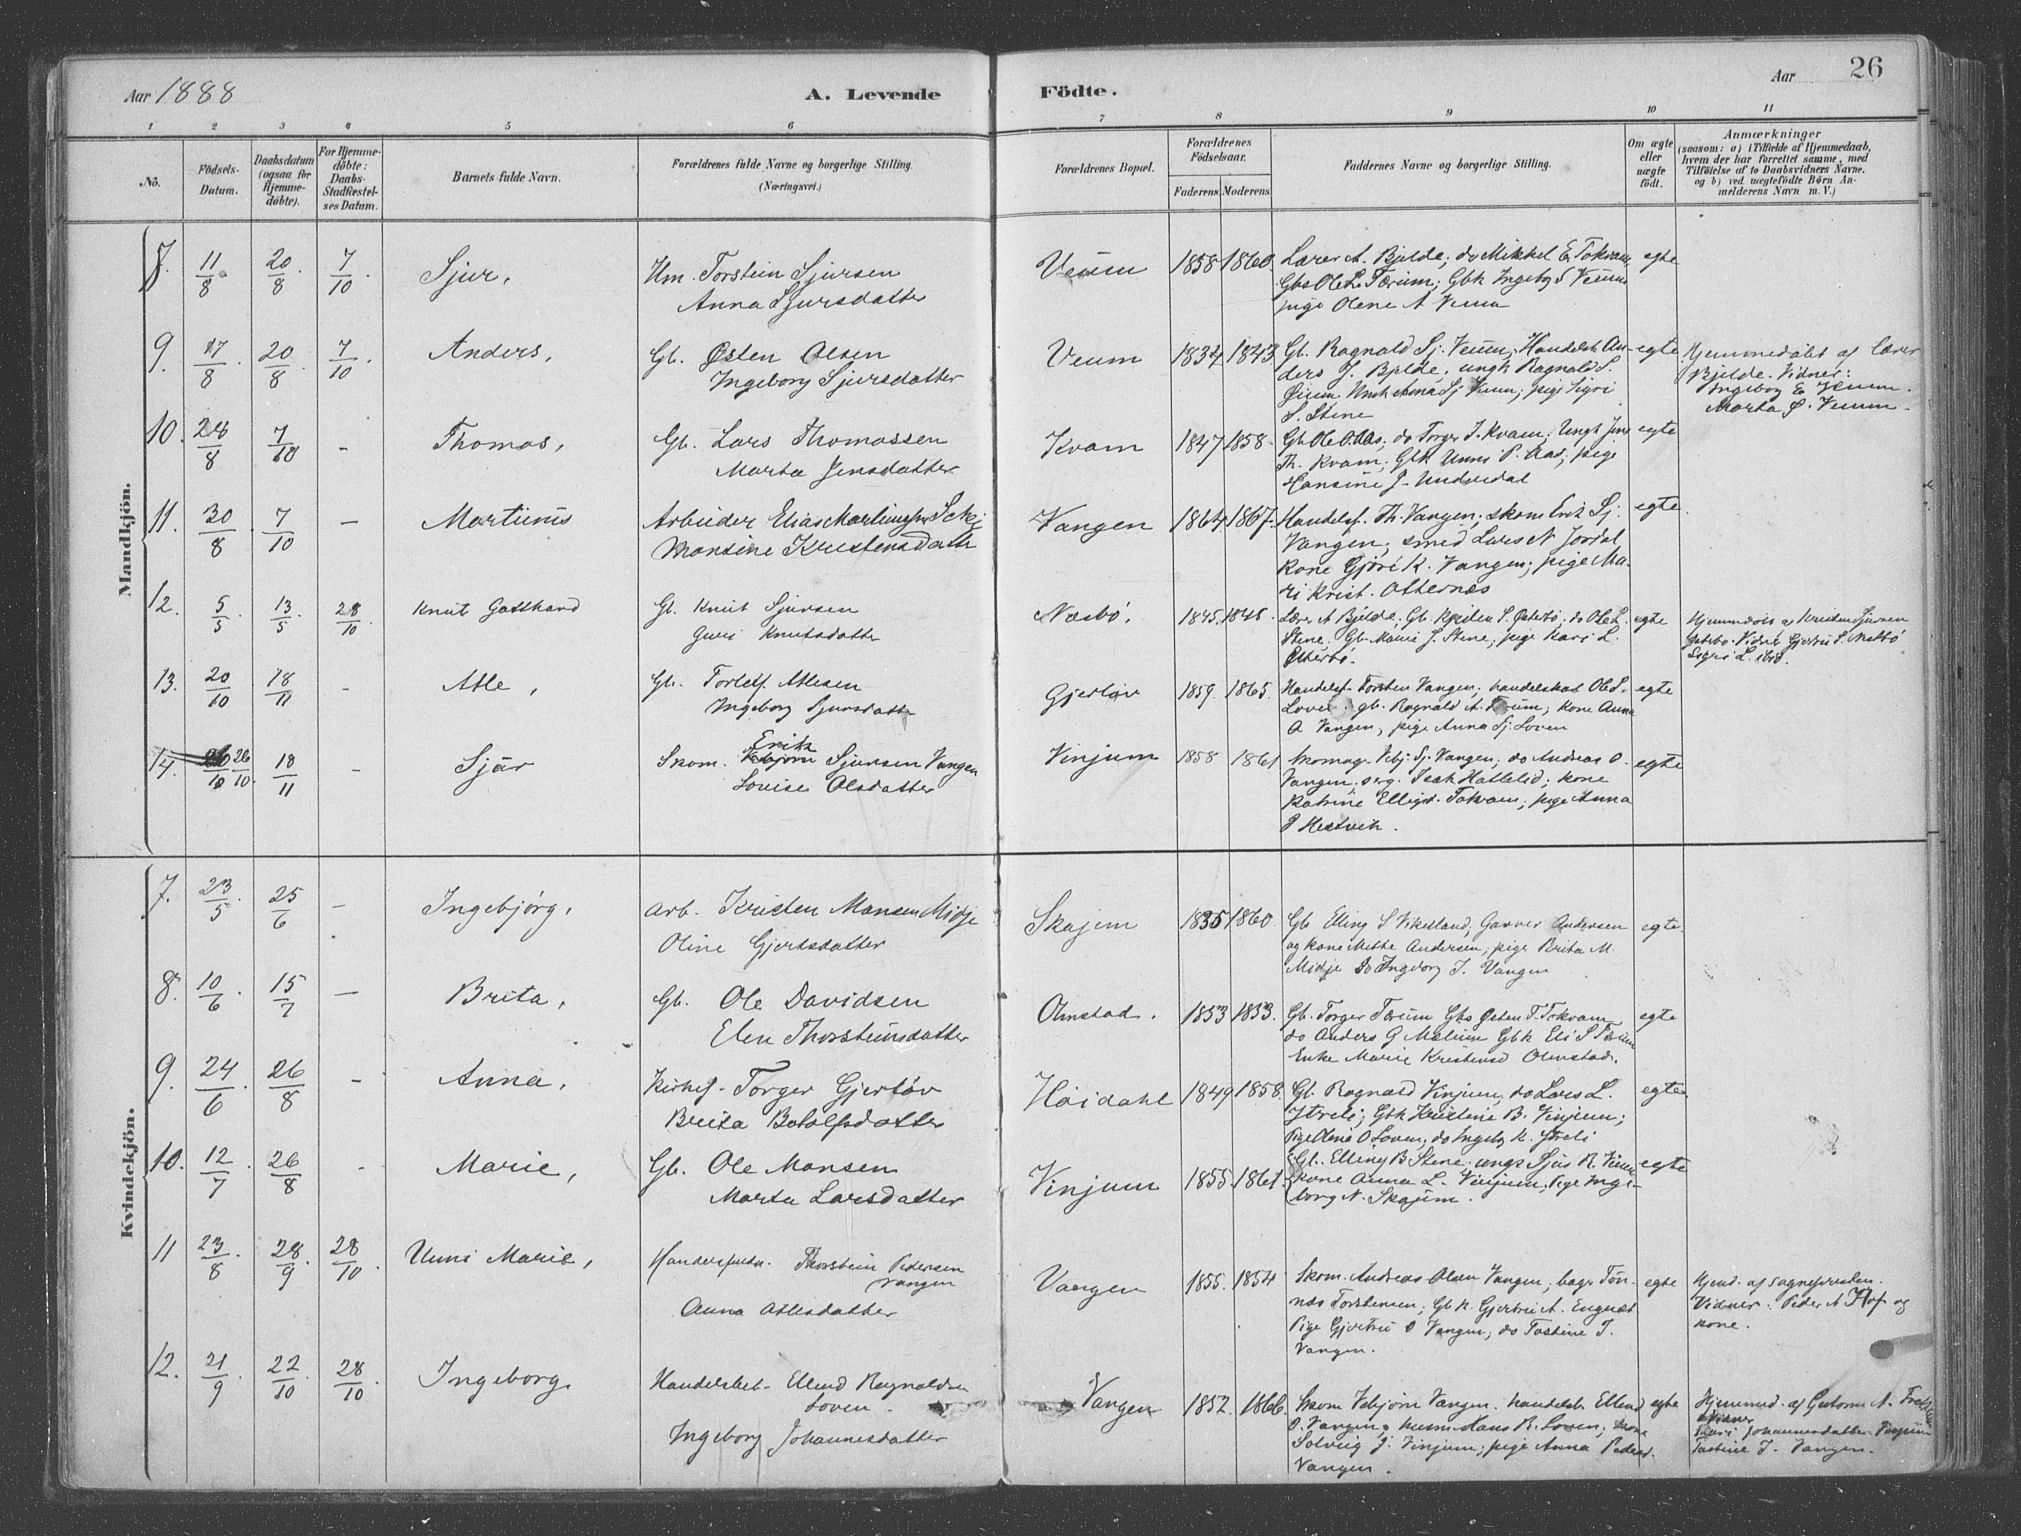 Aar 1888
A. Levende Födte.
Aar
26
1 2 3 4 5 6 7 8 9 10 11
No.
Födsels-Datum.
Daabsdatum (ogsaa for Hjemmedöbte).
For Hjemmedöbte: Daabs-Stadfestelses Datum.
Barnets fulde Navn.
Forældrenes fulde Navne og borgerlige Stilling. (Næringsvei.)
Forældrenes Bopæl.
Forældrenes Födselsaar.
Faderens.
Moderens.
Faddernes Navne og borgerlige Stilling.
Om ægte eller uægte födt.
Anmærkninger (saasom: a) i Tilfælde af Hjemmedaab, hvem der har forrettet samme, med Tilföielse af to Daabsvidners Navne, og b) ved uægtefödte Börn Anmelderens Navn m. V.)
Mandkjön.
8. 11/8. 20/8 7/10. Sjur, Hm. Torstein Sjursen
Anna Sjursdatter
Veum 1858 1860. Lærer A. Bjelde; do Mikkel E. Tokvam,
Gbs Ole L. Færum; Gbk Ingeb. S Veum
pige Olene A Veum
egte
9. 17/8. 20/8. 7/10. Anders, Gb. Østen Olsen
Ingeborg Sjursdatter
Veum 1834 1843 Gb. Ragnald Sj. Veum; Handelsb. An-
ders J. Bjelde; ungk Ragnald S.
Veum; pige Sigri
S. Stene
egte
Hjemmedöbt af lærer
Bjelde. Vidner:
Ingeborg E Veum.
Marta Ø. Veum.
10. 28/8 7/10 - Thomas, Gb. Lars Thomassen
Marta Jensdatter
Kvam 1847 1858. Gb Ole O. Aas; do Torger J. Kvam; Ungk Jens
Th. Kvam; Gbk Unni P. Aas; pige
Hansine J. Undredal
egte
11. 30/8 7/10 - Martinus Arbeider Elias Martinussen
Monsine Kristensdatt
Vangen 1864. 1867. Handelsf. Th. Vangen; skom Erik Sj.
Vangen; smed Lars N Jordal
kone Gjöri K. Vangen; pige Ma-
ri Krist. Otternes
egte
12. 5/5 13/5. 28/10 Knut Gotthard Gb. Knut Sjursen
Guri Knutsdatter
Næsbö. 1845. 1848. Lærer A Bjelde; Gb. Kristen S. Østebö; do Ole L.
Stene. Gb. Marie J. Stene; pige Kari L.
Otterbö.
egte
Hjemmedöbt af Kristen Sjursen
13. 20/10 18/11 - Atle, Gb. Torleif Atlesen
Ingeborg Sjursdatter
Gjerlöv 1859. 1865. Handelsf. Torsten Vangen; handelskar Ole S.
Loven; gb. Ragnald A. Færum; kone Anna
A Vangen, pige Anna Sj. Loven
egte
14. 26/10 26/10. 18/11 - Sjur Skom. Erik Sjursen Vangen
Lovise Olsdatter
Vinjum 1858 1861 Skomag. Vebj. Sj. Vangen; do Andreas O.
Vangen. serg. Isak Hatlelid; kone
Katrine Ellingsd. Tokvam; pige Anna
P Hestvik.
egte
Kvindekjön.
7. 23/5. 25/6 - Ingebjörg, Arb. Kristen Monsen Midje
Oline Gjertsdatter
Skajem 1835 1860. Gb Elling S Vikesland, Garver Andersen
og kone Mette Andersen; pige Brita M.
Midje do Ingeborg J. Vangen
egte.
8. 10/6. 15/7 - Brita, Gb. Ole Davidsen
Elen Thorsteinsdatter
Olmstad. 1853 1853. Gb. Torger Færum Gbs Østen T. Tokvam
do Anders G Melum Gbk Eli S Færum
Enke Marie Kristensd Olmstad.
egte
9. 24/6 26/8 - Anna, Kirkes. Torger Gjerlöv
Brita Botolfsdatter
Höidahl 1849 1858. Gb. Ragnald Vinjum, do Lars L.
Ytreli; Gbk Kristine B. Vinjum;
Pige Oline O Loven; do Ingeb. K. Ytreli
egte
10. 12/7 26/8 - Marie, Gb. Ole Monsen
Marta Larsdatter
Vinjum 1855. 1861. Gb. Elling B Stene. ungk Sjur R. Vinjum
kone Anna L. Vinjum; Pige Inge-
borg N. Skajum.
egte
11 23/8. 28/9. 28/10. Unni Marie, Handelsfuldm. Thorstein Pedersen
Vangen
Anna Atlesdatter
Vangen 1855. 1854 Skom. Andreas Olsen Vangen; bager Tön-
nes Torstensen; Gbk. Gjertrui A. Engesæt
Pige Gjertrui O Vangen; do Tostine J.
Vangen.
egte
Hjmd. af Sognepresten.
Vidner: Peder A Hof og
kone.
12. 21/9 22/10 28/10. Ingeborg. Handelsbet. Ellend Ragnaldsen
Loven.
Ingeborg Johannesdatter
Vangen 1852. 1866. Skom Vebjörn Vangen. handelsb. Ellend
O. Vangen; husm. Hans R. Loven; kone
Solveig J. Vinjum; pige Anna Pedersd.
Vangen.
egte
Hjemmed. af Guttorm A.
Vidner
Kari Johannesdatter Vinjum
Tostine J. Vangen.